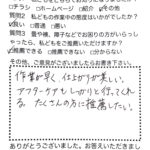 □チラシ □ホームページ □紹介 ☑その他
質問2 私どもの作業中の態度はいかがでしたか？
☑良い □普通 □悪い
質問3 畳や襖、障子などでお困りの方がいらっしゃ
ったら、私どもをご推薦いただけますか？
☑推薦できる □推薦できない □分からない
その他、ご意見がございましたらお書き下さい
作業が早く、仕上がりが美しい。
アフターケアもしっかりと行ってくれ
る。たくさんの方に推薦したい。
ありがとうございました。お答えいただきまし